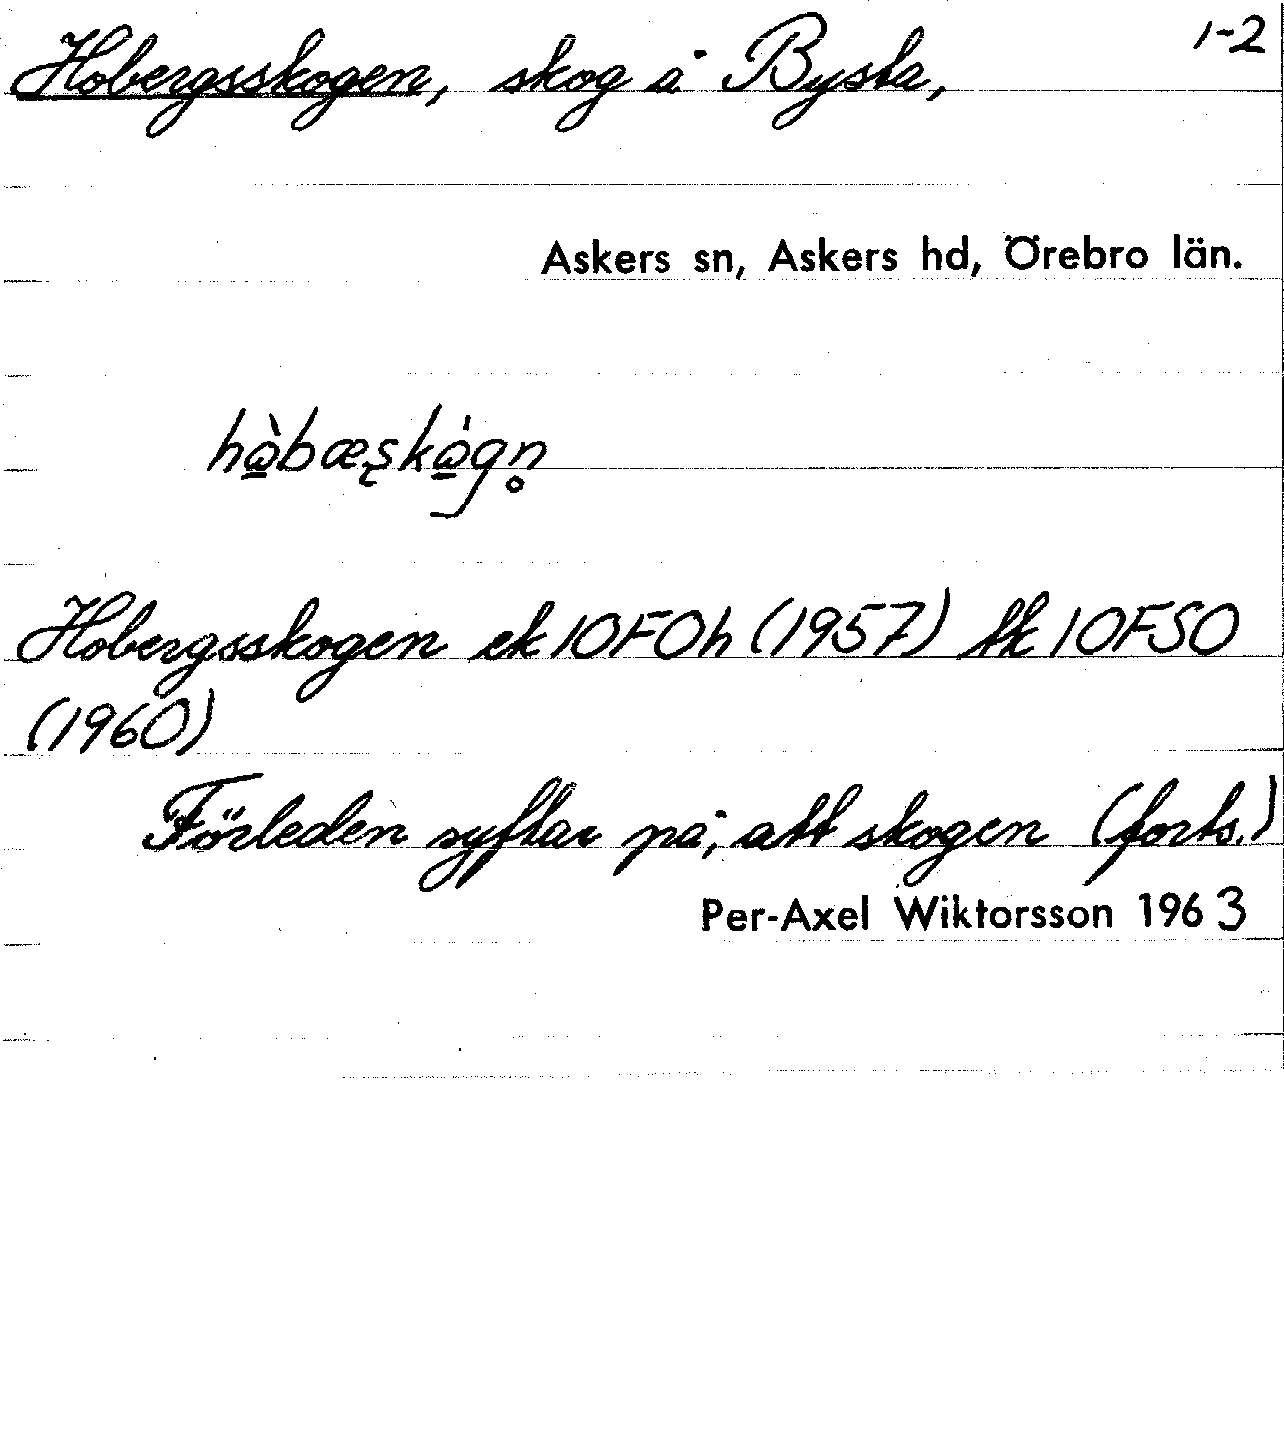 Hobergsskogen, skog å Bysta, 1-2
Askers sn, Askers hd, Örebro län.
hò̱bæʂkò̱gn̥
Hobergsskogen ek 10FOh (1957) tk 10FSO
(1960)
Förleden syftar på, att skogen (forts.)
Per-Axel Wiktorsson 1963